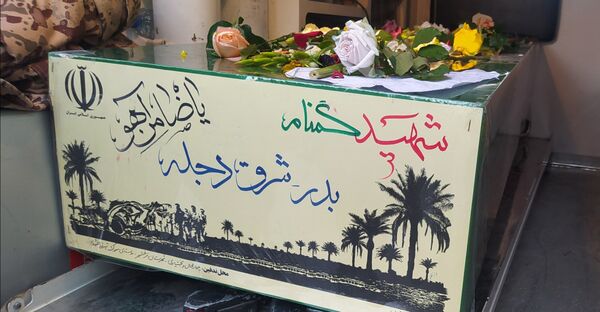 جمهوری اسلامی ایران
یا ضامن آهو
شهید گمنام
بدر - شرق دجله
محل تدفین: